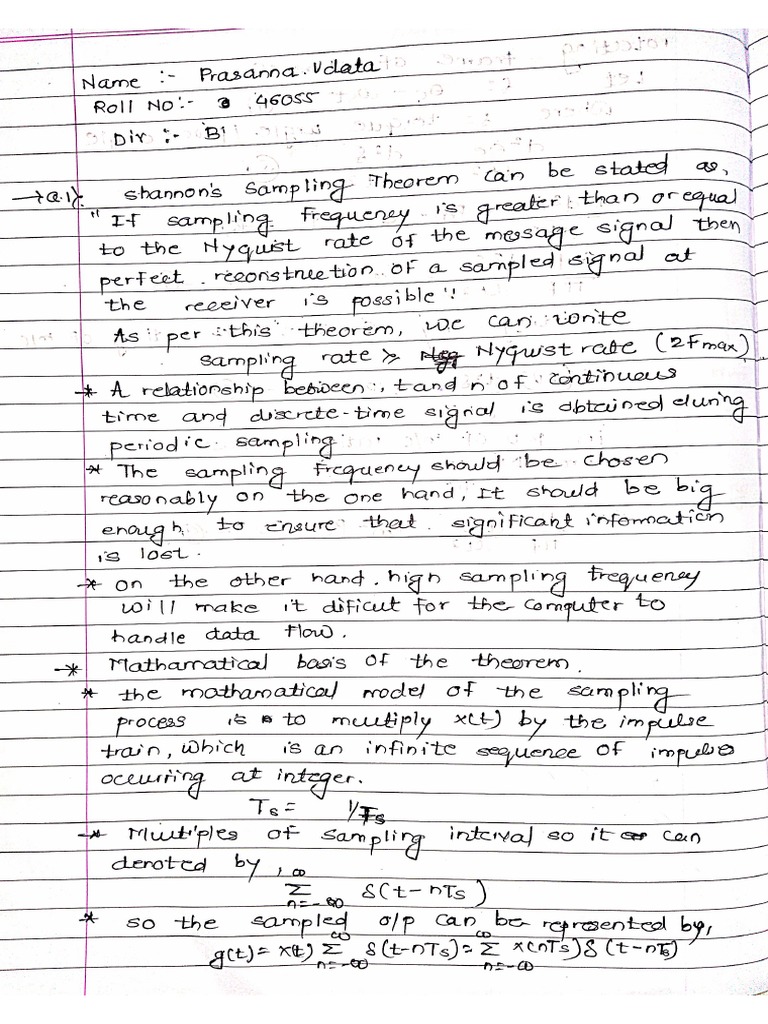 Name :- Prasanna. Vdata
Roll NO:- 46055
Div :- B1
→Q.1). Shannon's Sampling Theorem can be stated as,
" If sampling frequency is greater than or equal
to the Nyquist rate of the message signal then
perfect reconstruction of a sampled signal at
the receiver is possible".
As per this theorem, we can write
sampling rate ≥ Nyquist rate (2Fmax)
* A relationship between, t and n of continuous
time and discrete-time signal is obtained during
periodic sampling
* The sampling frequency should be chosen
reasonably on the one hand, It should be big
enough to ensure that significant information
is lost.
* on the other hand. high sampling frequency
will make it dificut for the computer to
handle data flow.
* Mathamatical basis of the theorem.
* the mathamatical model of the sampling
process is to multiply x(t) by the impulse
train, which is an infinite sequence of impulse
occurring at integer.
Ts = 1/Fs
* Multiples of sampling interval so it can
denoted by,
∞ Σ n=-∞ δ(t-nTs)
* so the sampled o/p can be represented by,
g(t) = x(t) ∞ Σ n=-∞ δ(t-nTs) = ∞ Σ n=-∞ x(nTs) δ (t-nTs)